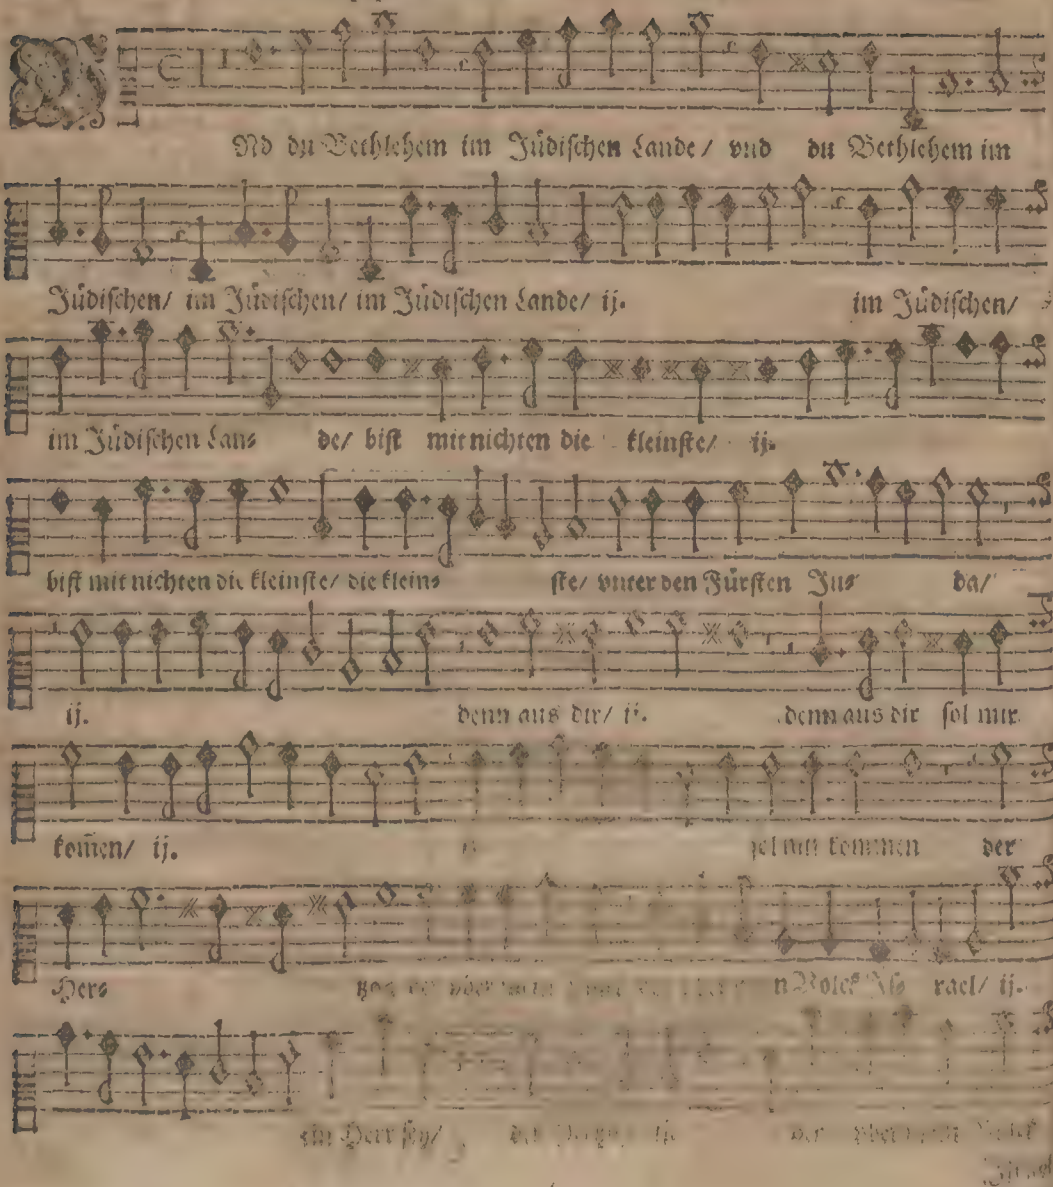 VNd du Bethlehem im Jüdischen Lande/ vnd du Bethlehem im
Jüdischen/ im Jüdischen/ im Jüdischen Lande/ ij. im Jüdischen/
im Jüdischen Lan⸗ de/ bist mit nichten die kleinste/ ij.
bist mit nichten die kleinste/ die klein⸗ ste/ vnter den Fürsten Ju⸗ da/
ij. denn aus dir/ ij. denn aus dir sol mir
kom̃en/ ij. sol mir kommen der
Her⸗ Volck Js⸗ rael/ ij.
ein Herr sey/ der vber mein Volck